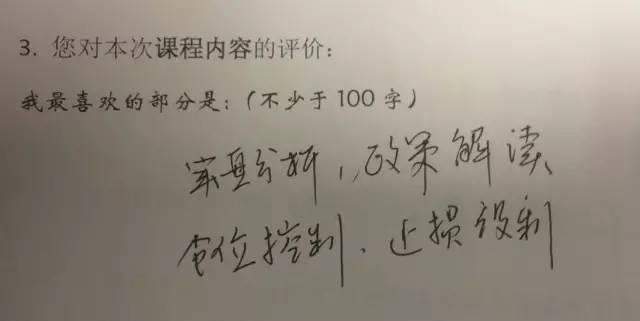 3. 您对本次课程内容的评价：
我最喜欢的部分是：（不少于 100 字）
分析，政策解读、
仓位控制、止损设制